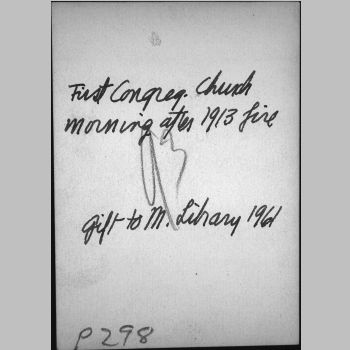 First Congreg. Church
morning after 1913 fire
gift to M. Library 1961
P298